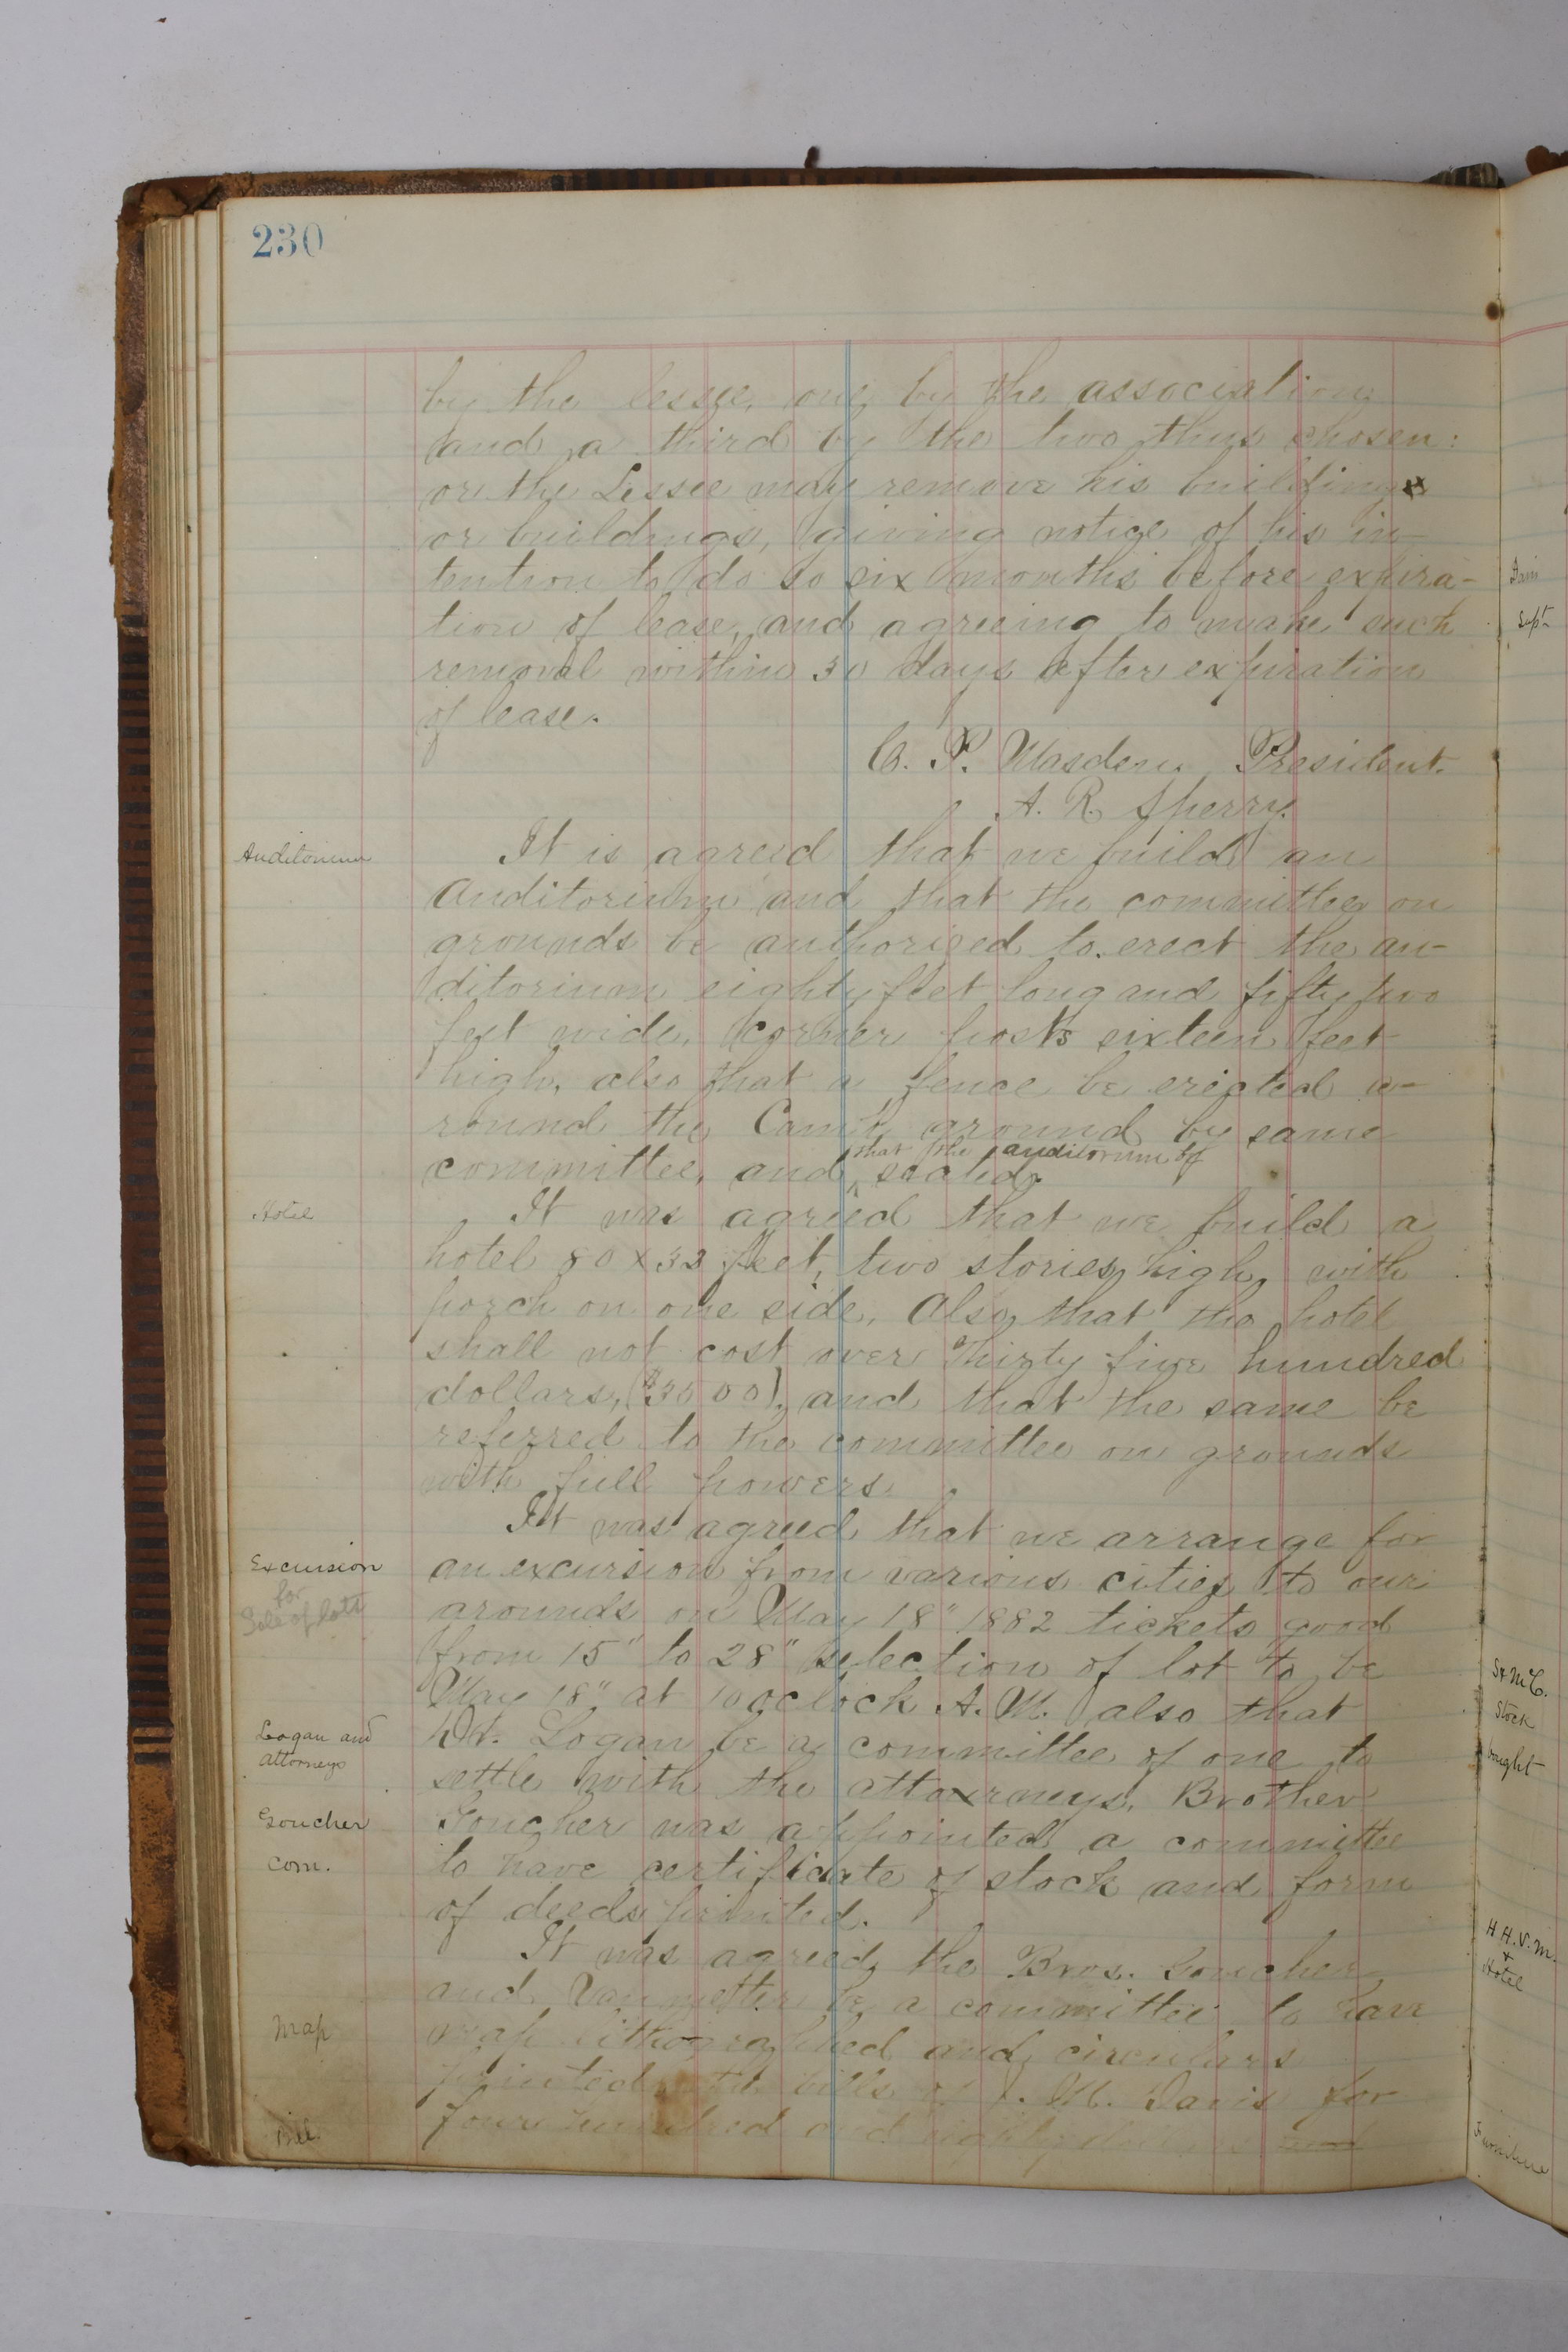 230
by the lessee, one by the association
and a third by the two thus chosen:
or the Lessee may remove his building
or buildings, giving notice of his in-
tention to do so six months before expira-
tion of lease, and agreeing to make such
removal within 30 days after expiration
of lease.
C. P. Masden President.
A. R. Sperry.
Auditorium
It is agreed that we build an
Auditorium and that the committee on
grounds be authorized to erect the au-
ditorium eighty feet long and fifty two
feet wide, corner posts sixteen feet
high, also that a fence be erected a-
round the Camp ground by same
committee, and that the auditorium be seated.
Hotel
It was agreed that we build a
hotel 80 x 32 feet, two stories high, with
porch on one side, Also, that the hotel
shall not cost over Thirty five hundred
dollars, ($3500), and that the same be
referred to the committee on grounds
with full powers.
It was agreed that we arrange for
Excursion
for
Sale of lots
an excursion from various cities to our
grounds on May 18" 1882 tickets good
from 15" to 28" selection of lot to be
May 18", at 10 oclock A. M. also that
Logan and
attorneys
Dr. Logan be a committee of one to
settle with the attorneys. Brother
Goucher
com.
Goucher was appointed a committee
to have certificate of stock and form
of deeds printed.
It was agreed, the Bros. Goucher
and Vanmetter be a committee to have
Map
map lithographed and circulars
printed, bills of J. M. Davis for
Bill
four hundred and eighty
Sept
St M C.
Stock
bought
H. H. V. M.
+
Hotel
Furniture